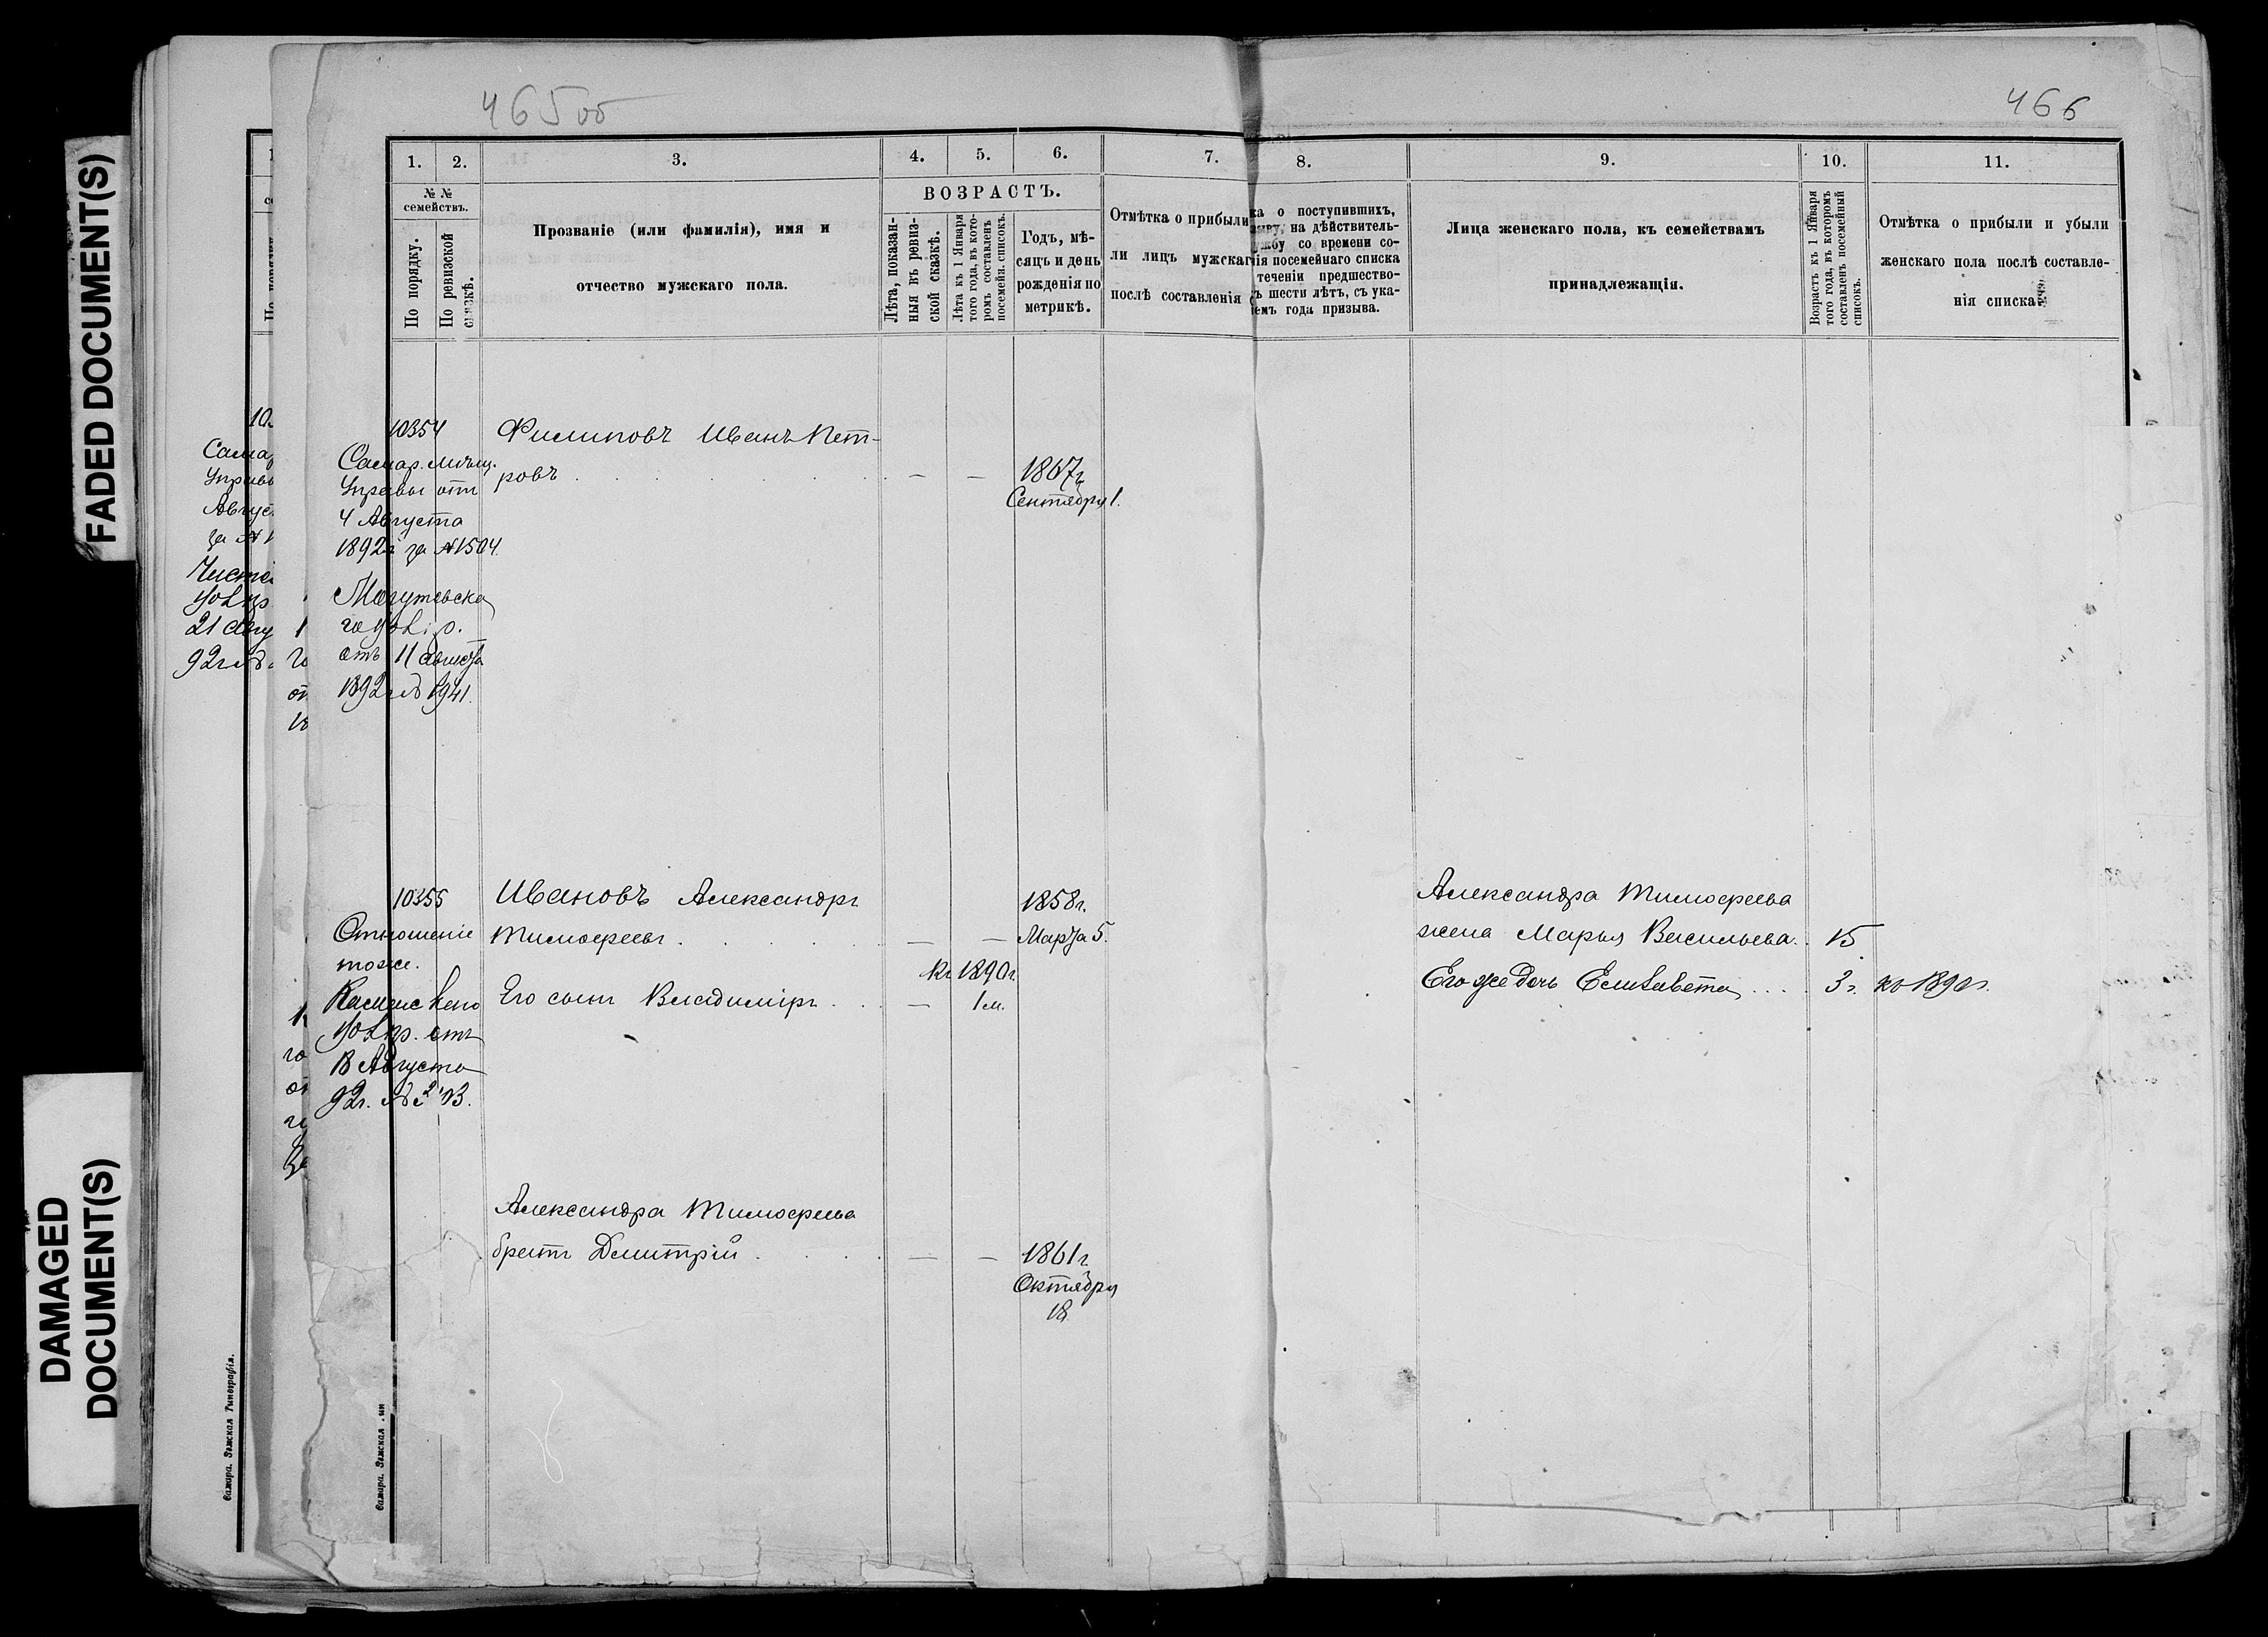 FADED DOCUMENT(S)
DAMAGED
DOCUMENT(S)
465об
466
1. 2. 3. 4. 5. 6. 7. 8. 9. 10. 11.
№ №
семействъ.
По порядку.
По ревизской
сказкѣ.
Прозваніе (или фамилія), имя и
отчество мужскаго пола.
ВОЗРАСТЪ.
Лѣта, показан-
ныя въ ревиз-
ской сказкѣ.
Лѣта къ 1 Января
того года, въ кото-
ромъ составленъ
посемейн. списокъ.
Годъ, мѣ-
сяцъ и день
рожденія по
метрикѣ.
Отмѣтка о прибыли
ли лицъ мужскаг
послѣ составленія
ка о поступившихъ,
зыву, на дѣйствитель-
ужбу со времени со-
нія посемейнаго списка
теченіи предшество-
ъ шести лѣтъ, съ ука-
емъ года призыва.
Лица женскаго пола, къ семействамъ
принадлежащія.
Возрастъ къ 1 Января
того года, въ которомъ
составленъ посемейный
списокъ.
Отмѣтка о прибыли и убыли
женскаго пола послѣ составле-
нія списка.
10354
Самар. Мѣщ.
Управы отъ
4 Августа
1892г за №1504.
отъ 11 августа
1892г № 1941.
Филиповъ Иванъ Пет-
ровъ . . . — — 1867г
Сентября 1.
10355
Отношеніе
тоже.
18 Августа
92г.
Ивановъ Александръ
Тимофеевъ . . . — — 1858г.
Марта 5.
Къ 1890г.
Его сынъ Владиміръ . . — 1 м.
Александра Тимофеева
братъ Дмитрій . . . — — 1861г
Октября
18
Александра Тимофеева
жена Марья Васильева . 25
Его же дочь Елизавета . . . 3г. къ 1890г.
Самара. Земская Типографія.
Самара. Земская